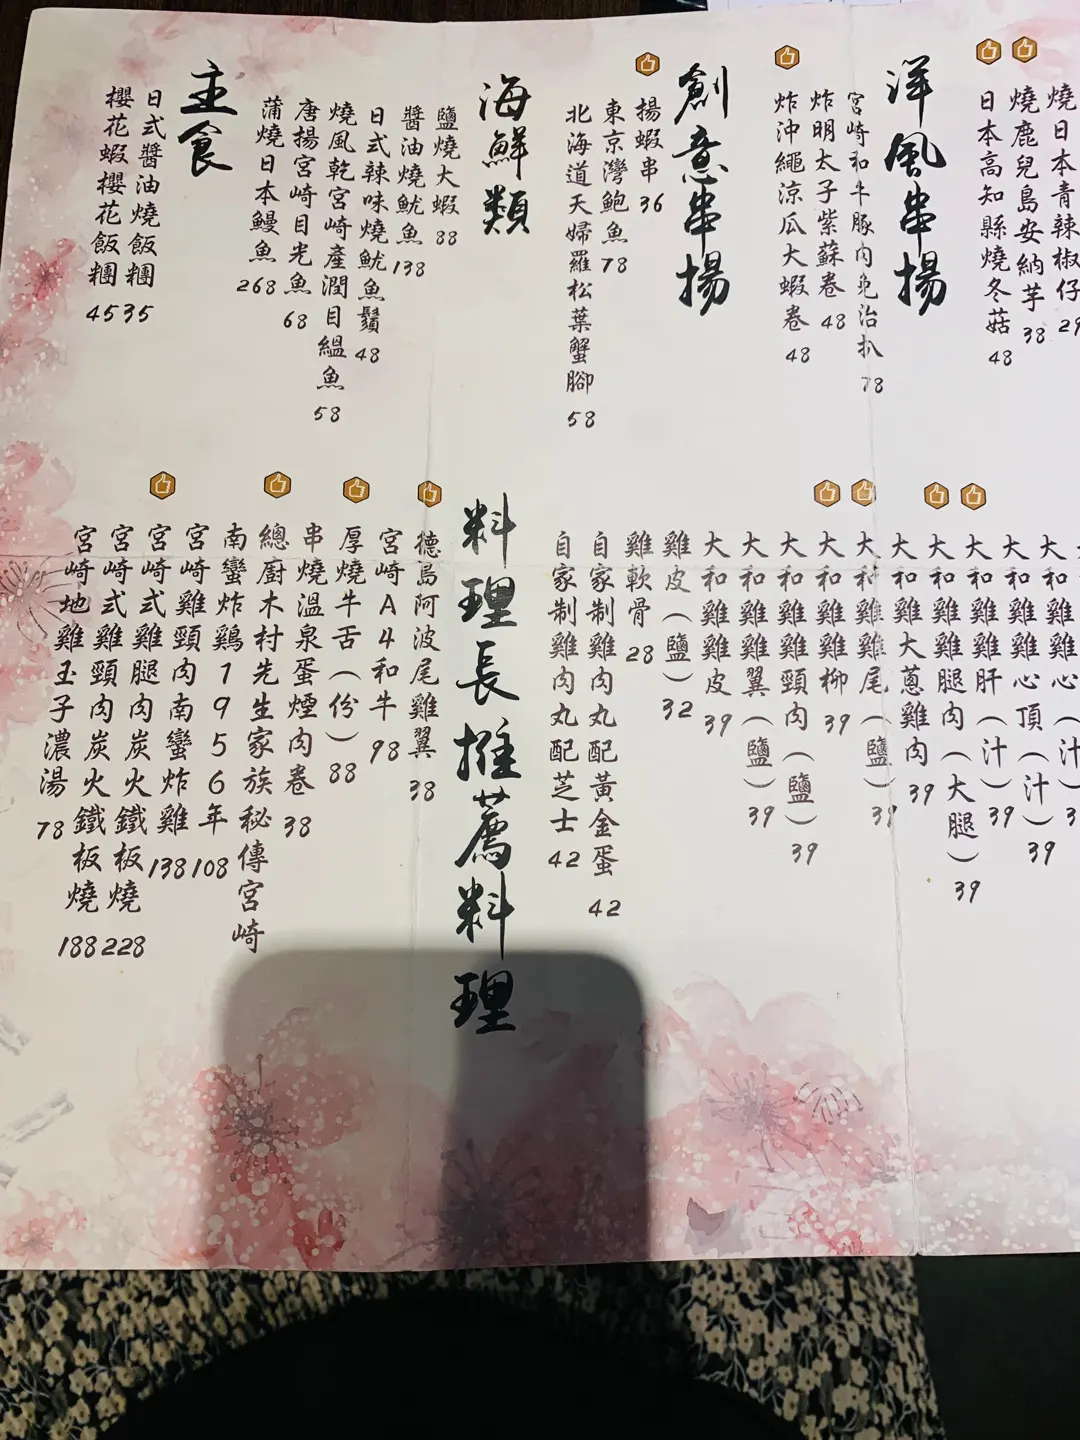 燒日本青辣椒仔 29
燒鹿兒島安納芋 38
日本高知縣燒冬菇 48
洋風串揚
宮崎和牛豚肉免治扒 78
炸明太子紫蘇卷 48
炸沖繩涼瓜大蝦卷 48
創意串揚
揚蝦串 36
東京灣鮑魚 78
北海道天婦羅松葉蟹腳 58
海鮮類
鹽燒大蝦 88
醬油燒魷魚 138
日式辣味燒魷魚鬚 48
燒風乾宮崎產潤目縕魚 58
唐揚宮崎目光魚 68
蒲燒日本鰻魚 268
主食
日式醬油燒飯糰 35
櫻花蝦櫻花飯糰 45
大和雞心(汁)
大和雞心頂(汁) 39
大和雞肝(汁) 39
大和雞腿肉(大腿) 39
大和雞大蔥雞肉 39
大和雞雞尾(鹽) 39
大和雞雞柳 39
大和雞雞頸肉(鹽) 39
大和雞雞翼(鹽) 39
大和雞雞皮 39
雞皮(鹽) 32
雞軟骨 28
自家制雞肉丸配黃金蛋 42
自家制雞肉丸配芝士 42
料理長推薦料理
德島阿波尾雞翼 38
宮崎A4和牛 98
厚燒牛舌(份) 88
串燒溫泉蛋煙肉卷 38
總廚木村先生家族秘傳宮崎
南蠻炸鷄1956年 108
宮崎雞頸肉南蠻炸雞 138
宮崎式雞腿肉炭火鐵板燒 228
宮崎式雞頸肉炭火鐵板燒 188
宮崎地雞玉子濃湯 78